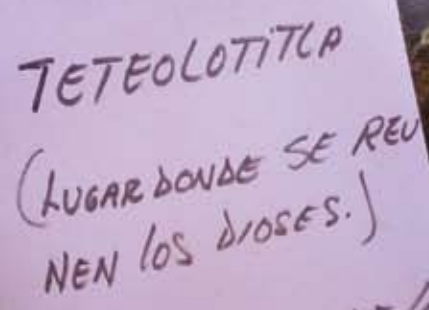 TETEOLOTITLA
(LUGAR DONDE SE REU
NEN LOS DIOSES.)